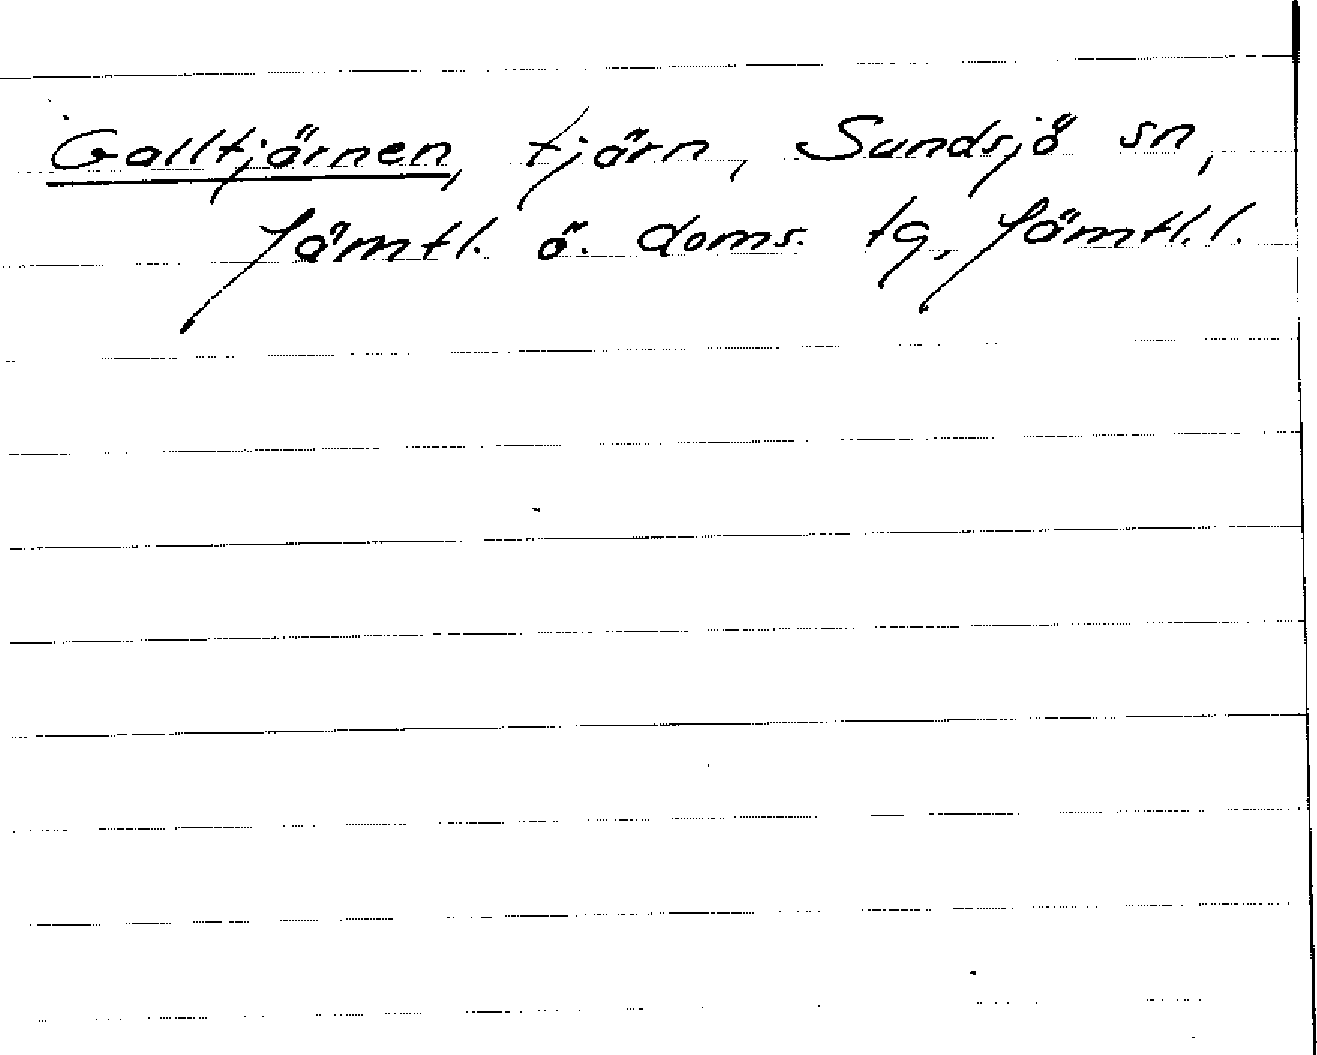 Galltjärnen, tjärn, Sundsjö sn,
Jämtl. ö. doms. tg, Jämtl. l.